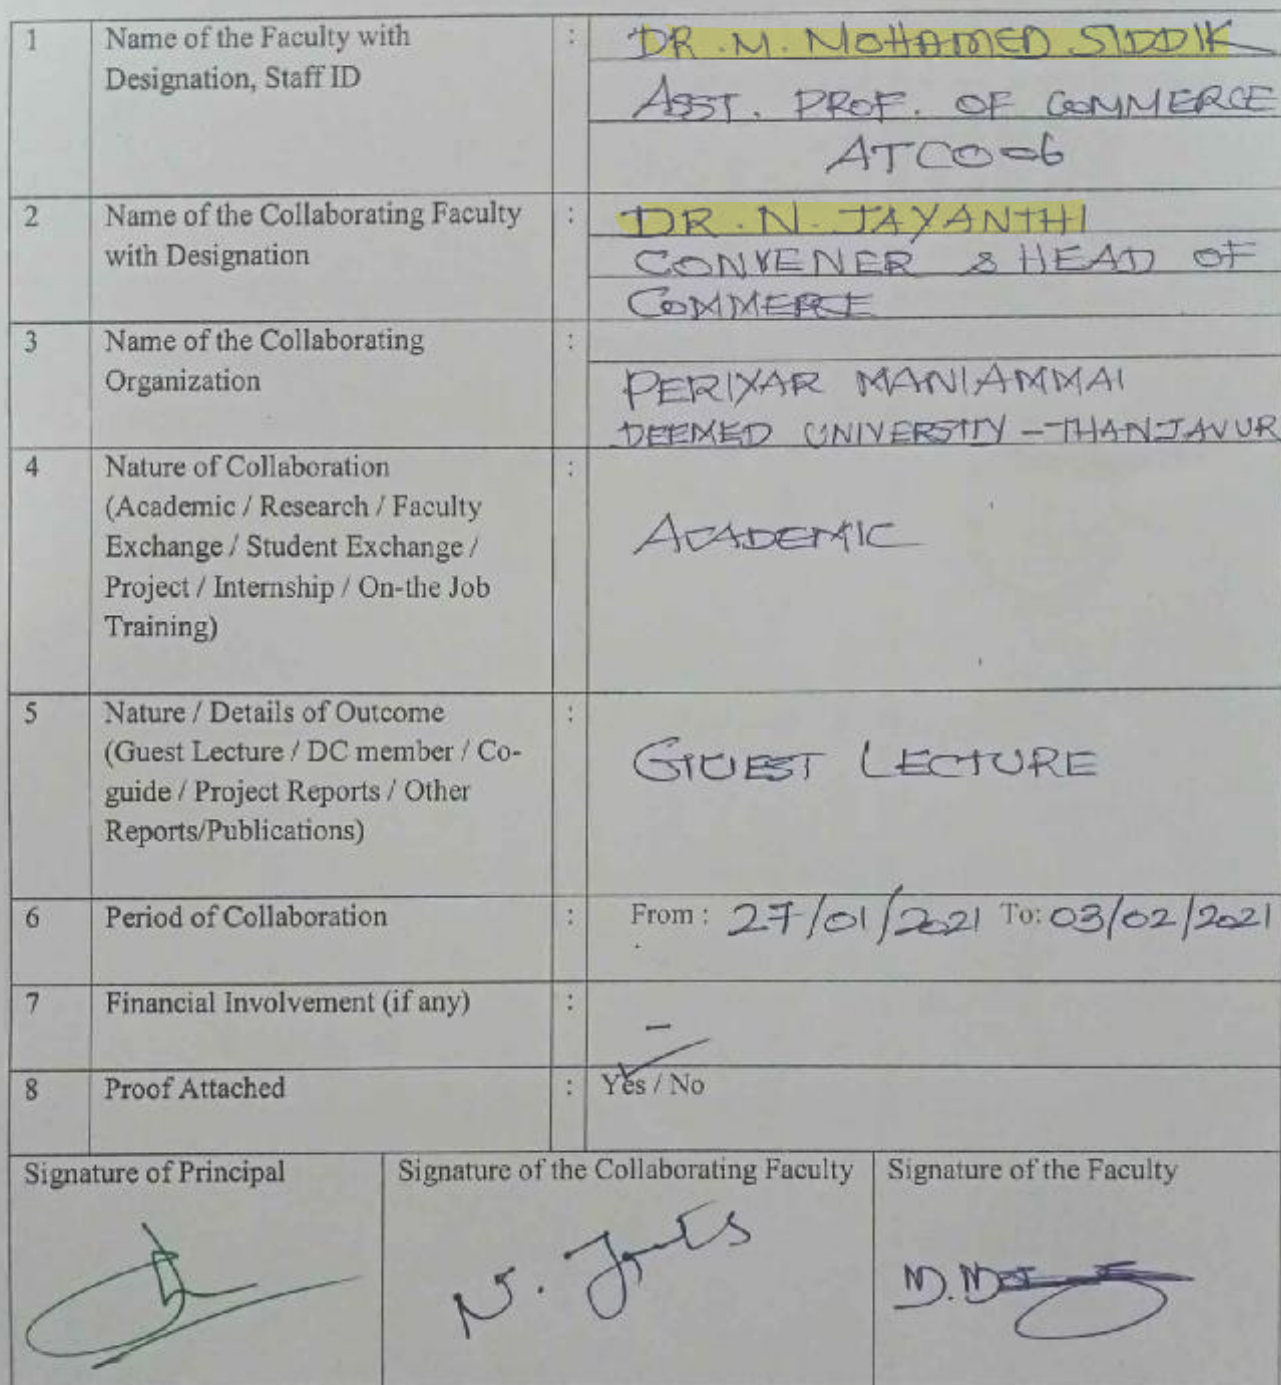 1 Name of the Faculty with : DR. M. MOHAMED SIDDIK
Designation, Staff ID ASST. PROF. OF COMMERCE
ATCO06
2 Name of the Collaborating Faculty : DR. N. JAYANTHI
with Designation CONVENER & HEAD OF
COMMERCE
3 Name of the Collaborating :
Organization PERIYAR MANIAMMAI
DEEMED UNIVERSITY - THANJAVUR
4 Nature of Collaboration :
(Academic / Research / Faculty
Exchange / Student Exchange / ACADEMIC
Project / Internship / On-the Job
Training)
5 Nature / Details of Outcome :
(Guest Lecture / DC member / Co- GUEST LECTURE
guide / Project Reports / Other
Reports/Publications)
6 Period of Collaboration : From : 27/01/2021 To: 03/02/2021
7 Financial Involvement (if any) :
-
8 Proof Attached : Yes / No
Signature of Principal Signature of the Collaborating Faculty Signature of the Faculty
N.
M.